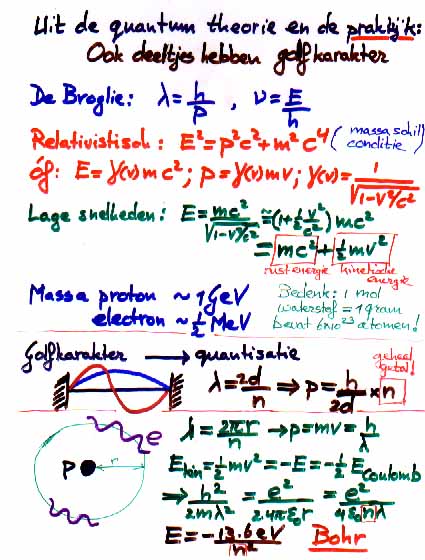 Uit de quantum theorie en de praktijk:
Ook deeltjes hebben golfkarakter
De Broglie: λ = h/p , ν = E/h
Relativistisch: E² = p²c² + m²c⁴ (massaschil conditie)
óf: E = γ(v)mc²; p = γ(v)mv; γ(v) = 1/√(1-v²/c²)
Lage snelheden: E = mc²/√(1-v²/c²) ≈ (1+½ v²/c²) mc²
= mc² + ½mv²
rustenergie kinetische energie
Massa proton ~ 1 GeV
electron ~ ½ MeV
Bedenk: 1 mol
waterstof = 1 gram
bevat 6×10²³ atomen!
Golfkarakter → quantisatie
geheel getal!
λ = 2d/n ⇒ p = h/2d × n
e
P
r
λ = 2πr/n → p = mv = h/λ
Ekin = ½mv² = -E = -½ ECoulomb
⇒ h²/2mλ² = e²/2·4πε₀r = e²/4ε₀nλ
E = -13.6 eV/n² Bohr